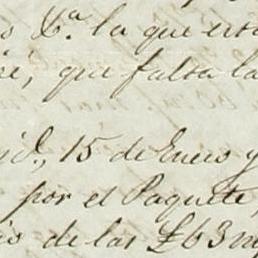 Xª. la que
que falta la
15 de Enero y
por el Paquete,
de las £63m